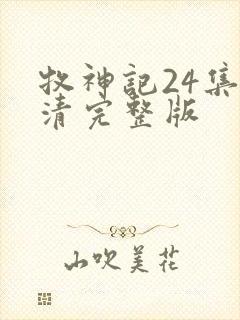 牧神記24集
清完整版
山吹美花